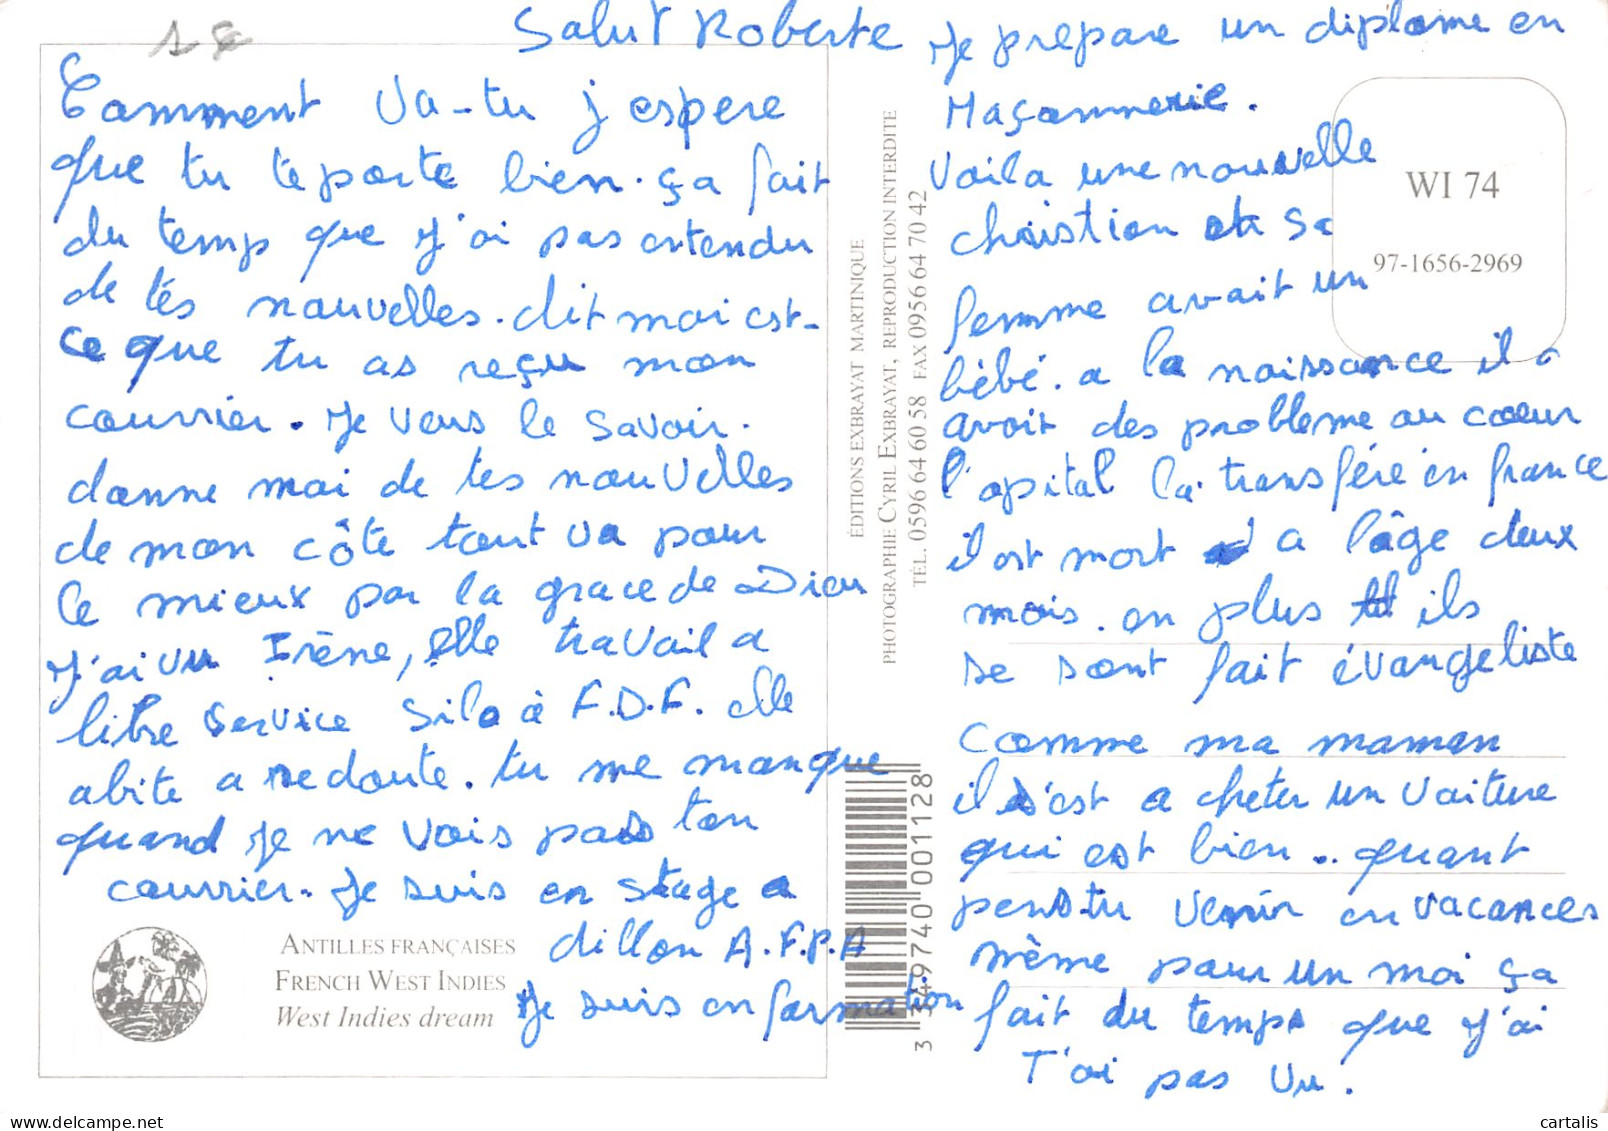 1€
Salut Roberte
Comment va-tu j'espere
que tu te porte bien. ça fait
du temp que j'ai pas entendu
de tés nouvelles. dit moi est-
ce que tu as reçu mon
courrier. Je veus le savoir.
donne moi de tes nouvelles
de mon côte tout va pour
le mieux par la grace de Dieu
J'ai vu Irène, elle travail a
libre service Silo à F.D.F. elle
abite a redoute. tu me manque
quand je ne vois pas ton
courrier. Je suis en stage a
dillon A.F.P.A
Je suis en formation
ANTILLES FRANÇAISES
FRENCH WEST INDIES
West Indies dream
ÉDITIONS EXBRAYAT MARTINIQUE
PHOTOGRAPHIE CYRIL EXBRAYAT, REPRODUCTION INTERDITE
TÉL. 0596 64 60 58 FAX 0956 64 70 42
3 349740 001128
Je prepare un diplome en
Maçonnerie.
Voila une nouvelle
christian et sa
femme avait un
bébé. a la naissance il
avoit des probleme au coeur
l'opital la transfére en france
il est mort a l'âge deux
mois. en plus ils
se sont fait évangeliste
comme ma maman
il s'est a cheter un voiture
qui est bien.. quant
penstu venir en vacances
même pour un moi ça
fait du temps que j'ai
T'ai pas vu.
WI 74
97-1656-2969
www.delcampe.net
cartalis